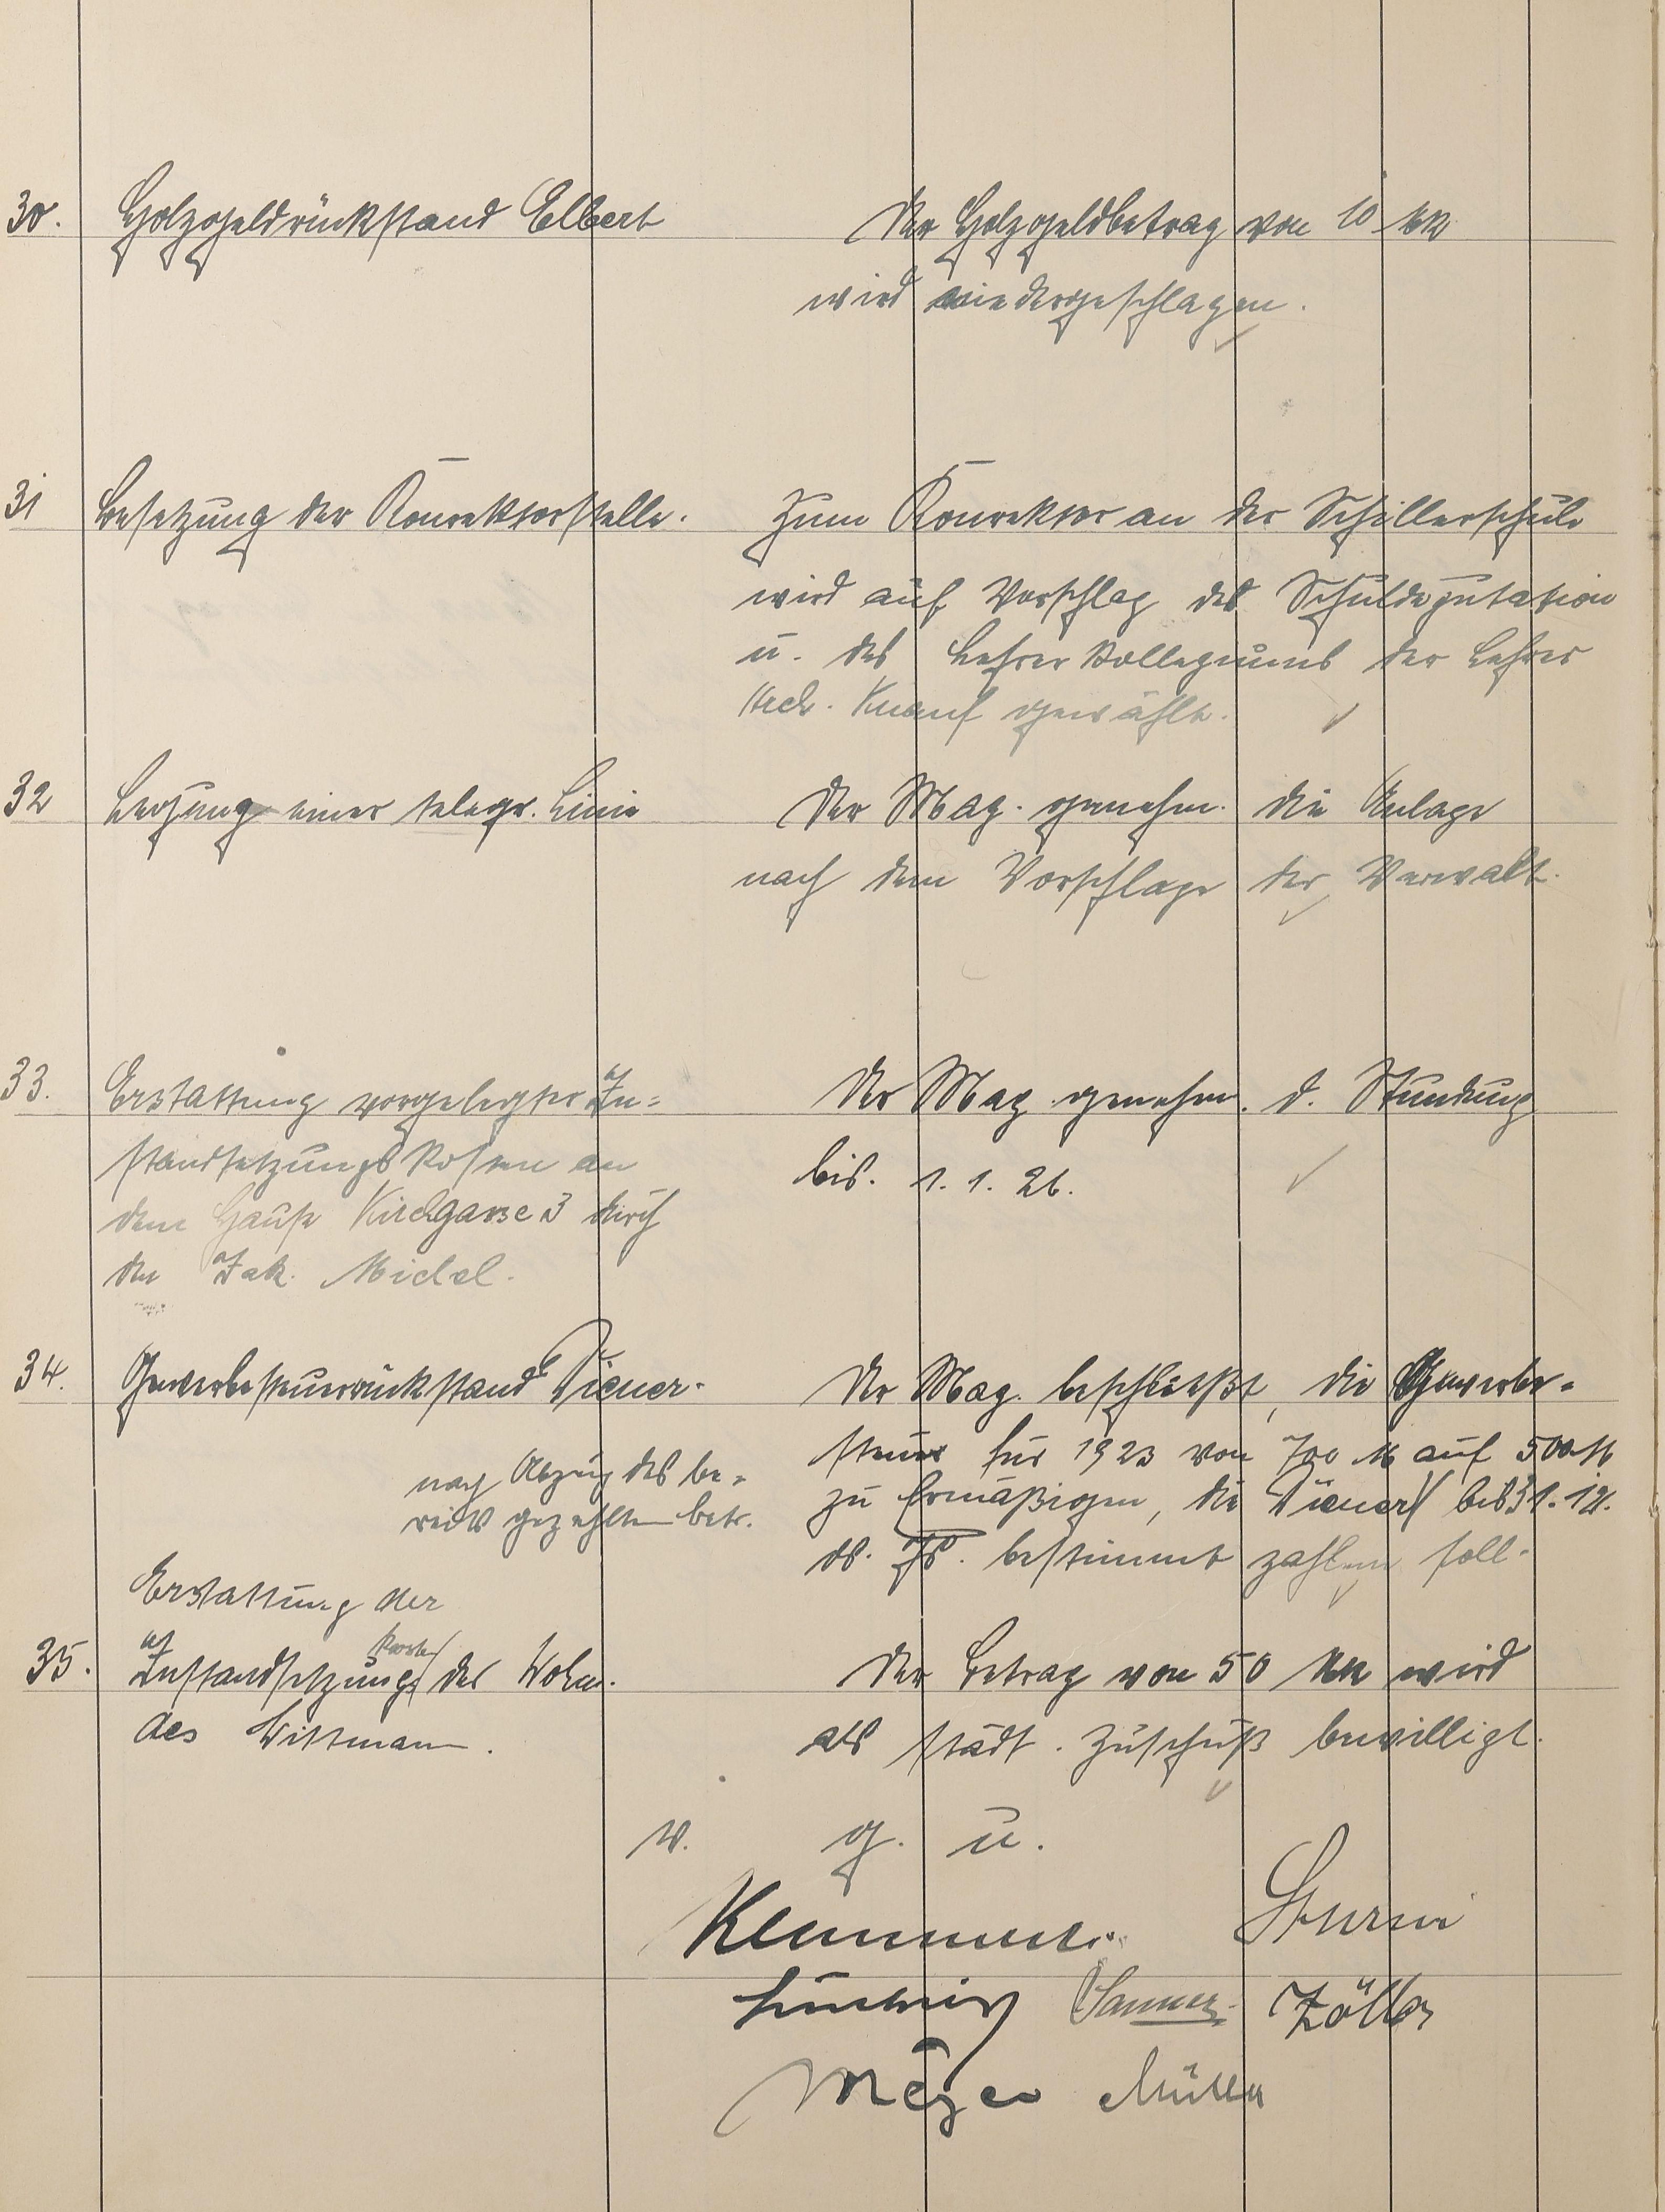 30. Holzgeldrückstand Elbert
Der Holzgeldbetrag von 10 M
wird niedergeschlagen.
31 Besetzung der Konrektorstelle.
Zum Konrektor an der Schillerschule
wird auf Vorschlag der Schuldeputation
u. des Lehrerkollegiums der Lehrer
Knauf gewählt.
32 Legung einer telegr. Linie
Der Mag. genehm. die Anlage
nach dem Vorschlage der Verwalt.
33. Erstattung vorgelegter In=
standsetzungskosten an
dem Hause Kirchgasse 3 durch
den Jak. Michel.
Der Mag. genehm. d. Stundung
bis. 1. 1. 26.
34. Gewerbesteuerrückstand Diener.
nach Abzug des be=
reits gezahlten Betr.
Der Mag. beschließt, die Gewerbe=
steuer für 1923 von 700 M auf 500 M
zu ermäßigen, die Diener bis 31. 12.
ds. Js. bestimmt zahlen soll.
Erstattung der
35. Instandsetzungskosten der Wohn.
des Wittmann.
Der Betrag von 50 M wird
als städt. Zuschuß bewilligt.
v. g. u.
Sturm
Ludwig Sanner Zöller
Meyer Müller